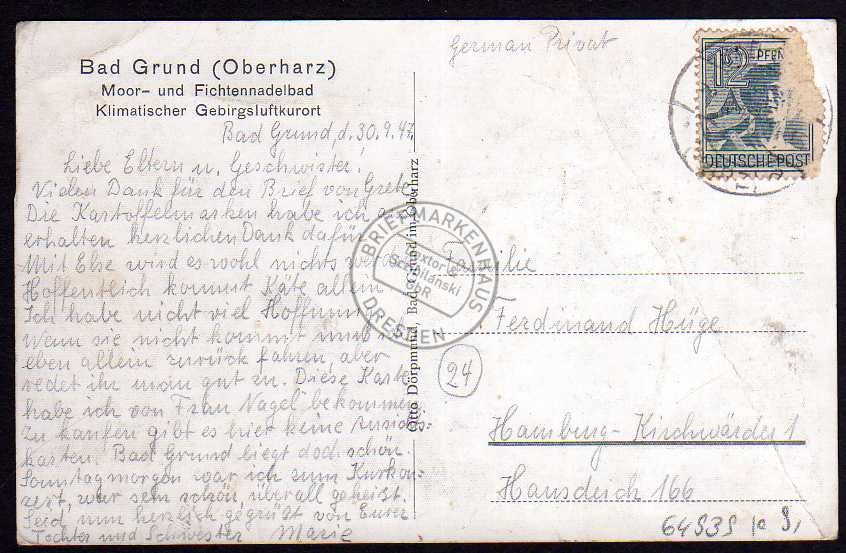 Bad Grund (Oberharz)
Moor- und Fichtennadelbad
Klimatischer Gebirgsluftkurort
Bad Grund, d. 30.9.47.
Liebe Eltern u. Geschwister!
Vielen Dank für den Brief von Grete
Die Kartoffelmarken habe ich
erhalten herzlichen Dank dafür
Mit Else wird es wohl nichts
Hoffentlich kommt Käte allein
Ich habe nicht viel Hoffnung
Wenn sie nicht kommt muß
eben allein zurück fahren, aber
redet ihr man gut zu. Diese Karte
habe ich von Frau Nagel bekommen.
Zu kaufen gibt es hier keine Ansichts-
karten. Bad Grund liegt doch schön.
Sonntagmorgen war ich zum Kurkon-
zert, war sehr schön, überall geheizt.
Seid nun herzlich gegrüßt von Eurer
Tochter und Schwester Marie
Otto Dörpmund, Bad Grund im Oberharz
German Privat
12 PFEN
DEUTSCHE POST
Familie
Ferdinand Hüge
24
Hamburg-Kirchwärder 1
Hausdeich 166
BRIEFMARKENHAUS
Schibilanski
GbR
DRESDEN